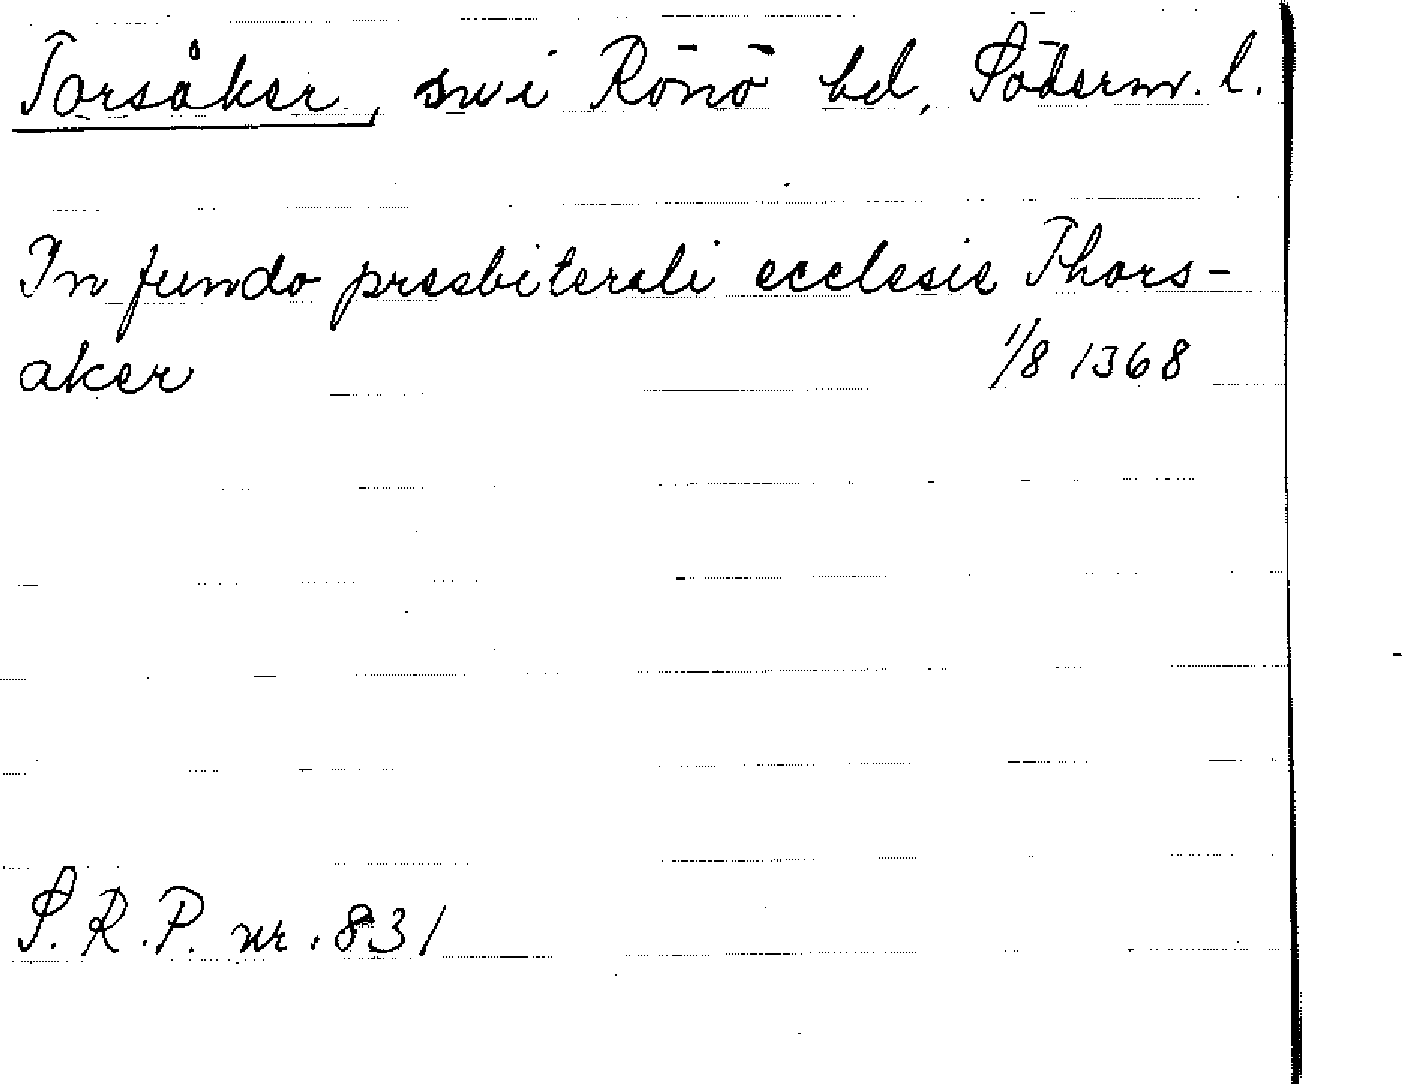 Torsåker, sn i Rönö hd, Söderm. l.
In fundo presbiterali ecclesie Thors-
aker 1/8 1368
S.R.P. nr. 831